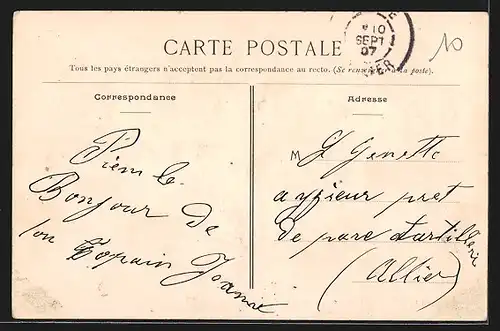 CARTE POSTALE
Tous les pays étrangers n'acceptent pas la correspondance au recto. (Se renseigner à la poste).
10
SEPT
07
10
Correspondance
Adresse
le
Bonjour De
ton Copain
M G Genette
a pret
de parc Lartillerie
(Allier)